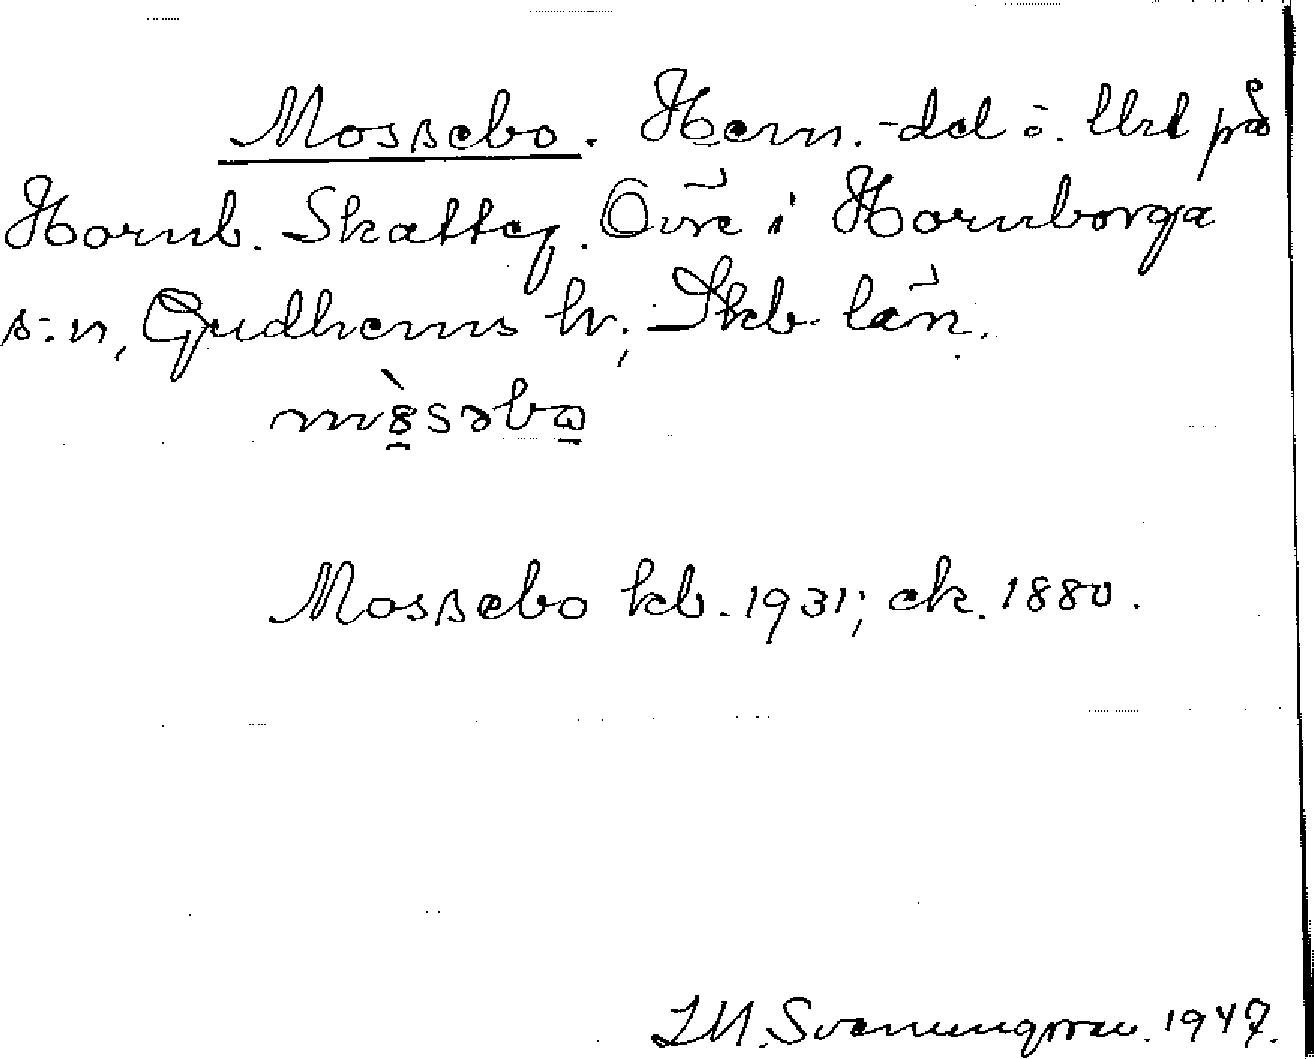 Mossebo. Hem.-del o. lht på
Hornb. Skatteg. Övre i Hornborga
s:n, Gudhems hr; Skb. län.
Mossebo kb. 1931; ek. 1880.
I.M. Svenungsson. 1947.